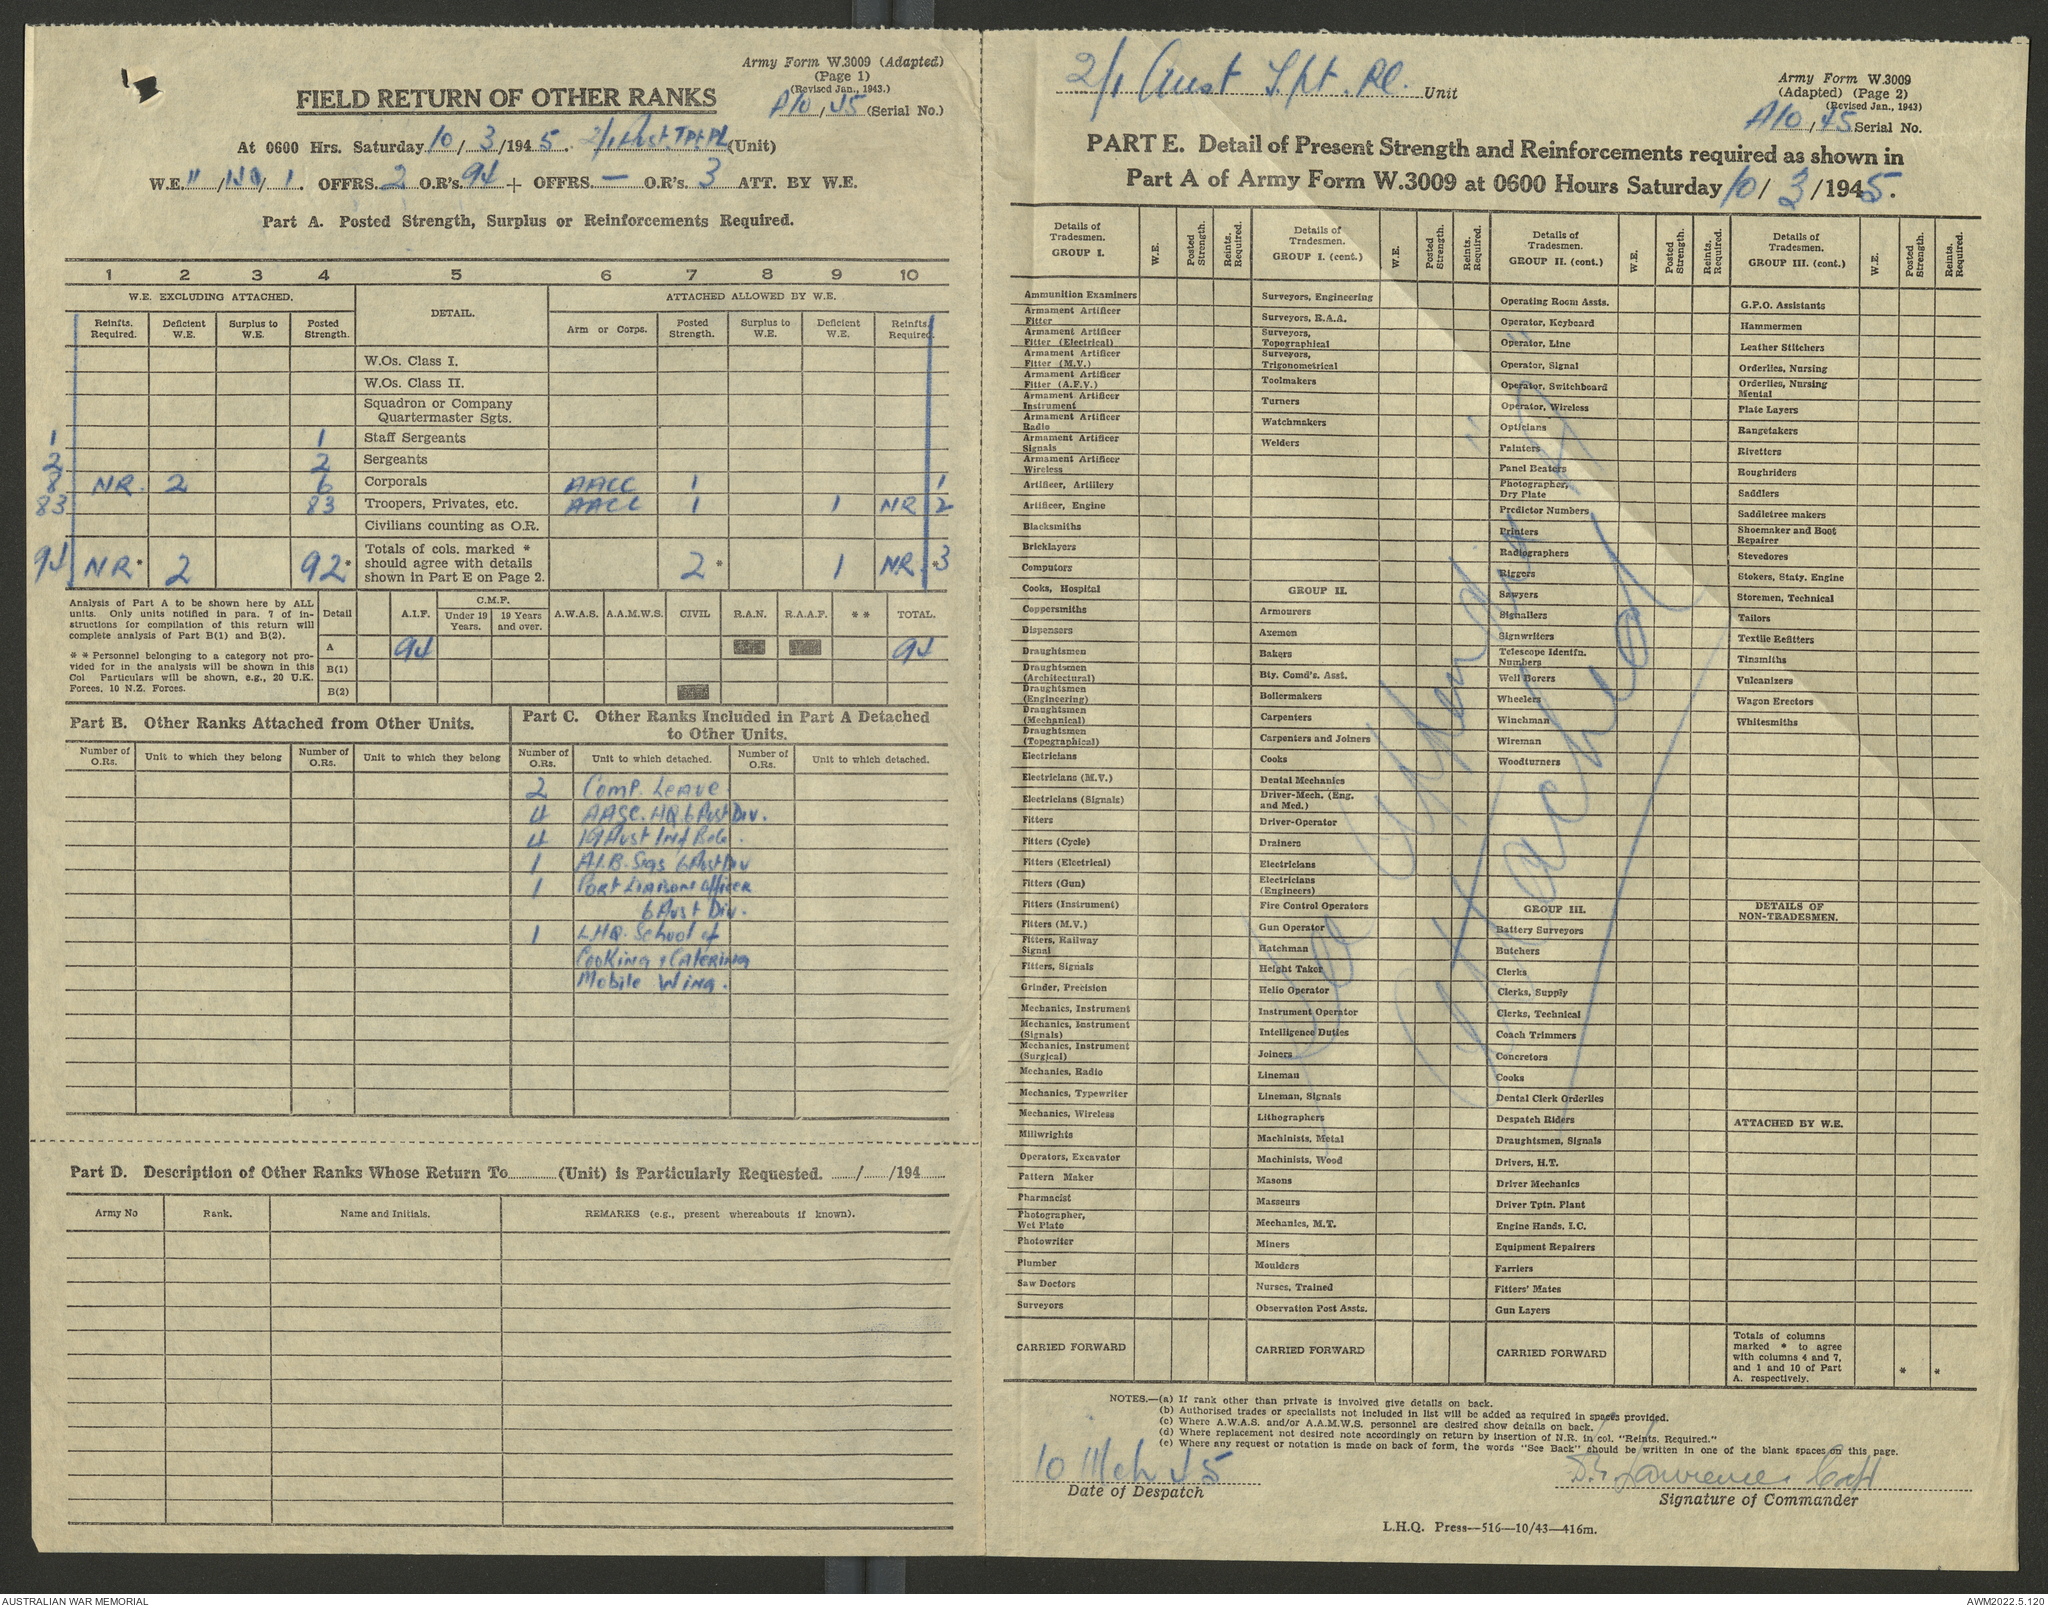 Army Form W.3009 (Adapted)
(Page 1)
(Revised Jan., 1943.)
A10/45 (Serial No.)
FIELD RETURN OF OTHER RANKS
At 0600 Hrs. Saturday 10/3/1945. 2/1 Aust Tpt Pl (Unit)
W.E. 11/ / 1. OFFRS. 2 O.R's. 94 + OFFRS. — O.R's. 3 ATT. BY W.E.
Part A. Posted Strength, Surplus or Reinforcements Required.
1 2 3 4 5 6 7 8 9 10
W.E. EXCLUDING ATTACHED. DETAIL. ATTACHED ALLOWED BY W.E.
Reinfts. Required. Deficient W.E. Surplus to W.E. Posted Strength. Arm or Corps. Posted Strength. Surplus to W.E. Deficient W.E. Reinfts. Required.
W.Os. Class I.
W.Os. Class II.
Squadron or Company
Quartermaster Sgts.
1 1 Staff Sergeants
2 2 Sergeants
8 NR. 2 6 Corporals AACC 1 1
83 83 Troopers, Privates, etc. AACC 1 1 NR 2
Civilians counting as O.R.
94 NR* 2 92* Totals of cols. marked * should agree with details shown in Part E on Page 2. 2* 1 NR.* 3
Analysis of Part A to be shown here by ALL
units. Only units notified in para. 7 of in-
structions for compilation of this return will
complete analysis of Part B(1) and B(2).
* * Personnel belonging to a category not pro-
vided for in the analysis will be shown in this
Col Particulars will be shown, e.g., 20 U.K.
Forces, 10 N.Z. Forces.
Detail A.I.F. C.M.F. Under 19 Years. 19 Years and over. A.W.A.S. A.A.M.W.S. CIVIL R.A.N. R.A.A.F. * * TOTAL.
A 94 94
B(1)
B(2)
Part B. Other Ranks Attached from Other Units.
Number of O.Rs. Unit to which they belong Number of O.Rs. Unit to which they belong
Part C. Other Ranks Included in Part A Detached
to Other Units.
Number of O.Rs. Unit to which detached. Number of O.Rs. Unit to which detached.
2 Comp. Leave
4 AASC. HQ 6 Aust Div.
4 19 Aust Inf Bde.
1 A.I.B. Sigs 6 Aust Div
1 Port Liaison Officer
6 Aust Div.
1 LHQ. School of
Cooking & Catering
Mobile Wing.
Part D. Description of Other Ranks Whose Return To (Unit) is Particularly Requested. / /194
Army No Rank. Name and Initials. REMARKS (e.g., present whereabouts if known).
2/1 Aust Tpt. Pl. Unit
Army Form W.3009
(Adapted) (Page 2)
(Revised Jan., 1943)
A10/45 Serial No.
PART E. Detail of Present Strength and Reinforcements required as shown in
Part A of Army Form W.3009 at 0600 Hours Saturday 10/3/1945.
Details of Tradesmen. GROUP I. W.E. Posted Strength. Reints. Required.
Ammunition Examiners
Armament Artificer Fitter
Armament Artificer Fitter (Electrical)
Armament Artificer Fitter (M.V.)
Armament Artificer Fitter (A.F.V.)
Armament Artificer Instrument
Armament Artificer Radio
Armament Artificer Signals
Armament Artificer Wireless
Artificer, Artillery
Artificer, Engine
Blacksmiths
Bricklayers
Computors
Cooks, Hospital
Coppersmiths
Dispensers
Draughtsmen
Draughtsmen (Architectural)
Draughtsmen (Engineering)
Draughtsmen (Mechanical)
Draughtsmen (Topographical)
Electricians
Electricians (M.V.)
Electricians (Signals)
Fitters
Fitters (Cycle)
Fitters (Electrical)
Fitters (Gun)
Fitters (Instrument)
Fitters (M.V.)
Fitters, Railway Signal
Fitters, Signals
Grinder, Precision
Mechanics, Instrument
Mechanics, Instrument (Signals)
Mechanics, Instrument (Surgical)
Mechanics, Radio
Mechanics, Typewriter
Mechanics, Wireless
Millwrights
Operators, Excavator
Pattern Maker
Pharmacist
Photographer, Wet Plate
Photowriter
Plumber
Saw Doctors
Surveyors
CARRIED FORWARD
Details of Tradesmen. GROUP I. (cont.) W.E. Posted Strength. Reints. Required.
Surveyors, Engineering
Surveyors, R.A.A.
Surveyors, Topographical
Surveyors, Trigonometrical
Toolmakers
Turners
Watchmakers
Welders
GROUP II.
Armourers
Axemen
Bakers
Bty. Comd's. Asst.
Boilermakers
Carpenters
Carpenters and Joiners
Cooks
Dental Mechanics
Driver-Mech. (Eng. and Med.)
Driver-Operator
Drainers
Electricians
Electricians (Engineers)
Fire Control Operators
Gun Operator
Hatchman
Height Taker
Helio Operator
Instrument Operator
Intelligence Duties
Joiners
Lineman
Lineman, Signals
Lithographers
Machinists, Metal
Machinists, Wood
Masons
Masseurs
Mechanics, M.T.
Miners
Moulders
Nurses, Trained
Observation Post Assts.
CARRIED FORWARD
Details of Tradesmen. GROUP II. (cont.) W.E. Posted Strength. Reints. Required.
Operating Room Assts.
Operator, Keyboard
Operator, Line
Operator, Signal
Operator, Switchboard
Operator, Wireless
Opticians
Painters
Panel Beaters
Photographer, Dry Plate
Predictor Numbers
Printers
Radiographers
Riggers
Sawyers
Signallers
Signwriters
Telescope Identfn. Numbers
Well Borers
Wheelers
Winchman
Wireman
Woodturners
GROUP III.
Battery Surveyors
Butchers
Clerks
Clerks, Supply
Clerks, Technical
Coach Trimmers
Concretors
Cooks
Dental Clerk Orderlies
Despatch Riders
Draughtsmen, Signals
Drivers, H.T.
Driver Mechanics
Driver Tptn. Plant
Engine Hands, I.C.
Equipment Repairers
Farriers
Fitters' Mates
Gun Layers
CARRIED FORWARD
Details of Tradesmen. GROUP III. (cont.) W.E. Posted Strength. Reints. Required.
G.P.O. Assistants
Hammermen
Leather Stitchers
Orderlies, Nursing
Orderlies, Nursing Mental
Plate Layers
Rangetakers
Rivetters
Roughriders
Saddlers
Saddletree makers
Shoemaker and Boot Repairer
Stevedores
Stokers, Staty. Engine
Storemen, Technical
Tailors
Textile Refitters
Tinsmiths
Vulcanizers
Wagon Erectors
Whitesmiths
DETAILS OF NON-TRADESMEN.
ATTACHED BY W.E.
Totals of columns
marked * to agree
with columns 4 and 7,
and 1 and 10 of Part
A. respectively. * *
See Appendix "A"
attached
NOTES.—(a) If rank other than private is involved give details on back.
(b) Authorised trades or specialists not included in list will be added as required in spaces provided.
(c) Where A.W.A.S. and/or A.A.M.W.S. personnel are desired show details on back.
(d) Where replacement not desired note accordingly on return by insertion of N.R. in col. "Reints. Required."
(e) Where any request or notation is made on back of form, the words "See Back" should be written in one of the blank spaces on this page.
10 Mch 45
Date of Despatch
Lawrence Capt
Signature of Commander
L.H.Q. Press—516—10/43—416m.
AUSTRALIAN WAR MEMORIAL
AWM2022.5.120